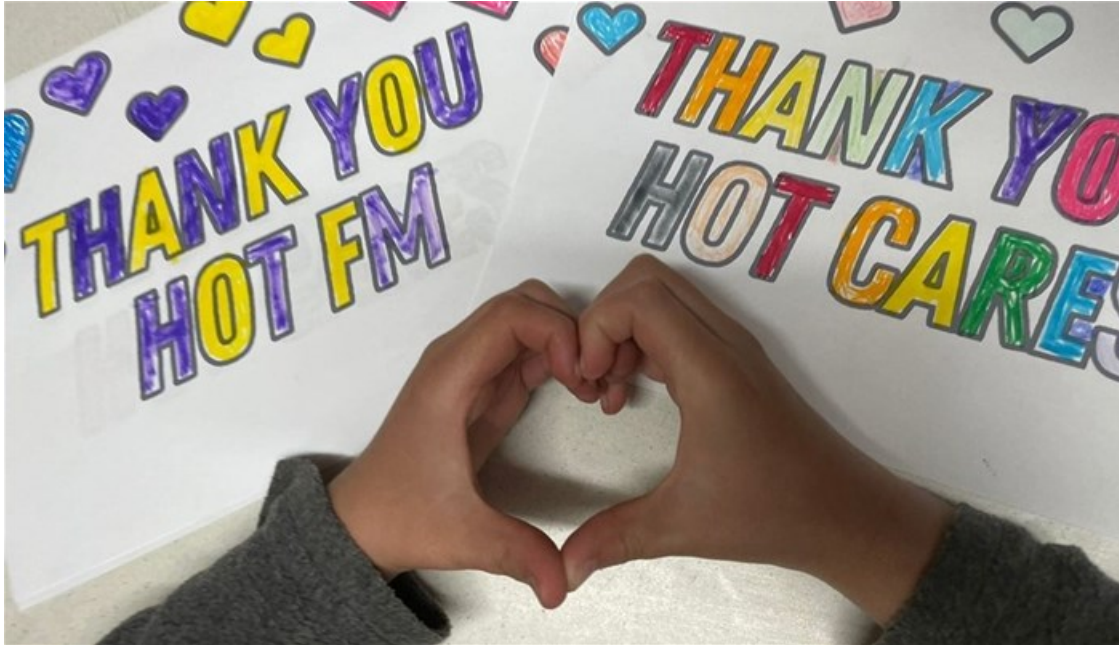 THANK YOU
HOT FM
THANK YO
HOT CARES